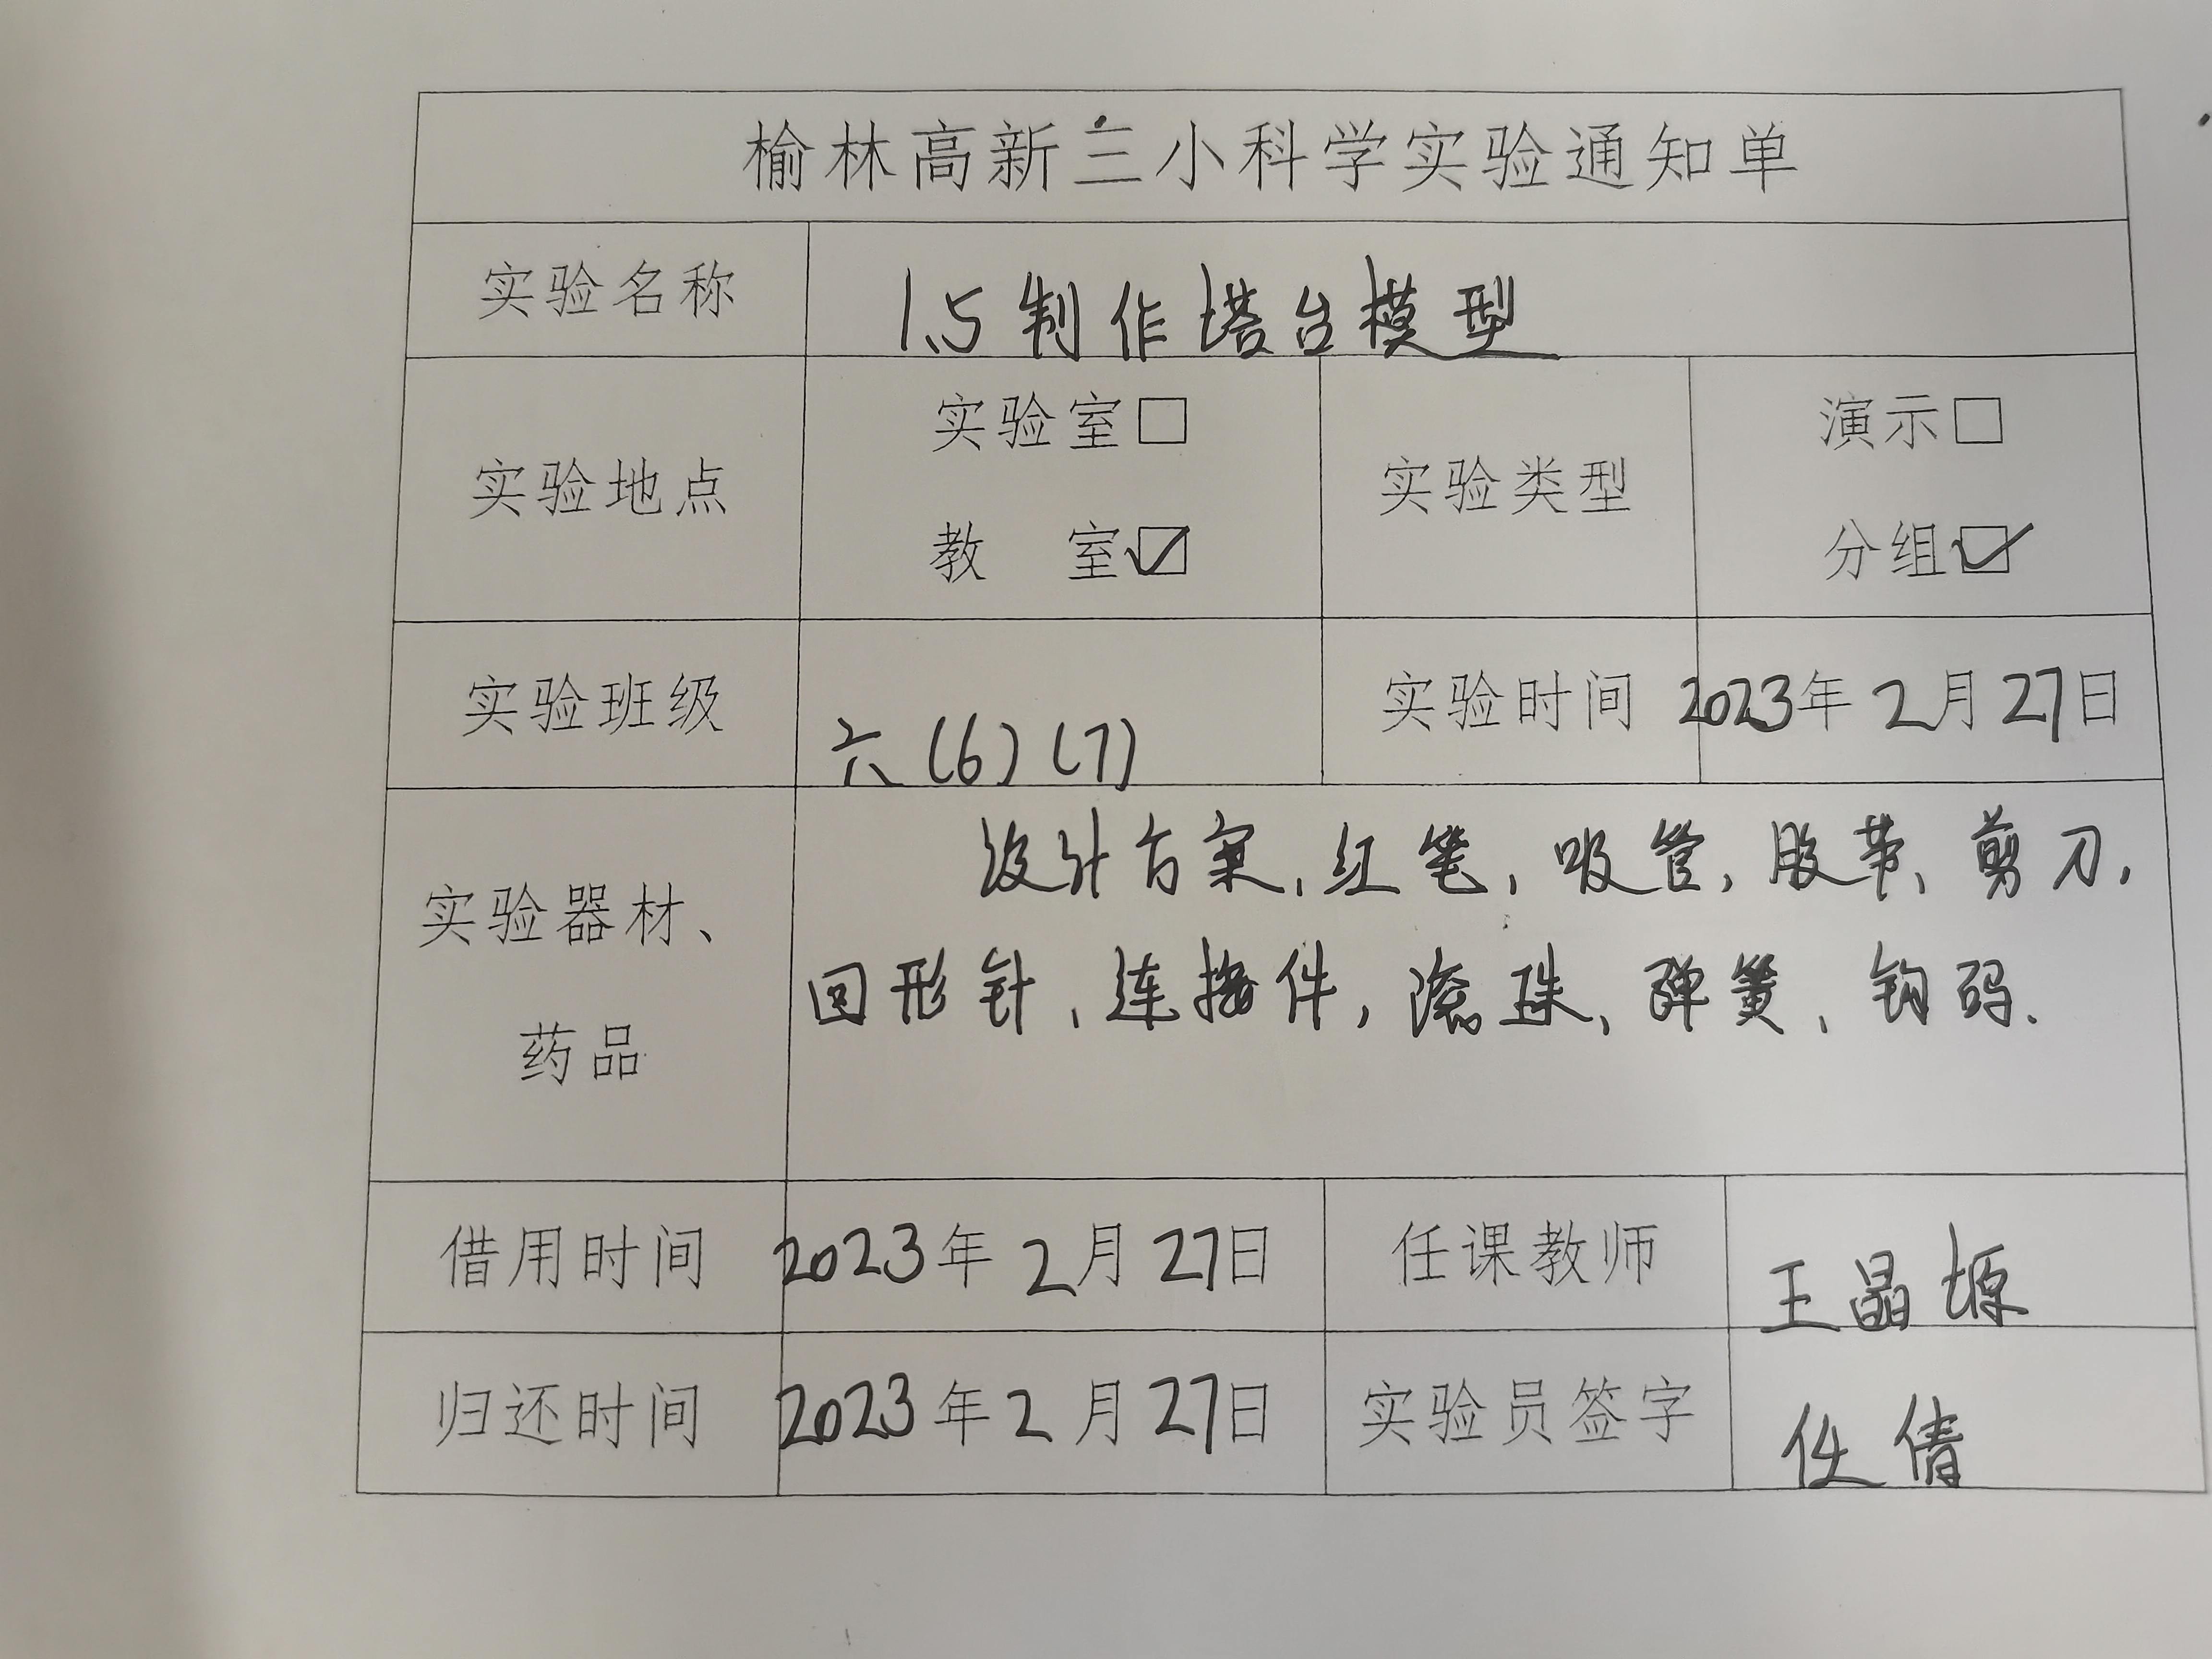 榆林高新三小科学实验通知单
实验名称 1.5制作塔台模型
实验地点 实验室□ 教 室☑ 实验类型 演示□ 分组☑
实验班级 六(6)(7) 实验时间 2023年2月27日
实验器材、药品
设计方案、红笔、吸管、胶带、剪刀、
回形针、连接件、滚珠、弹簧、钩码.
借用时间 2023年2月27日 任课教师 王晶塬
归还时间 2023年2月27日 实验员签字 倩